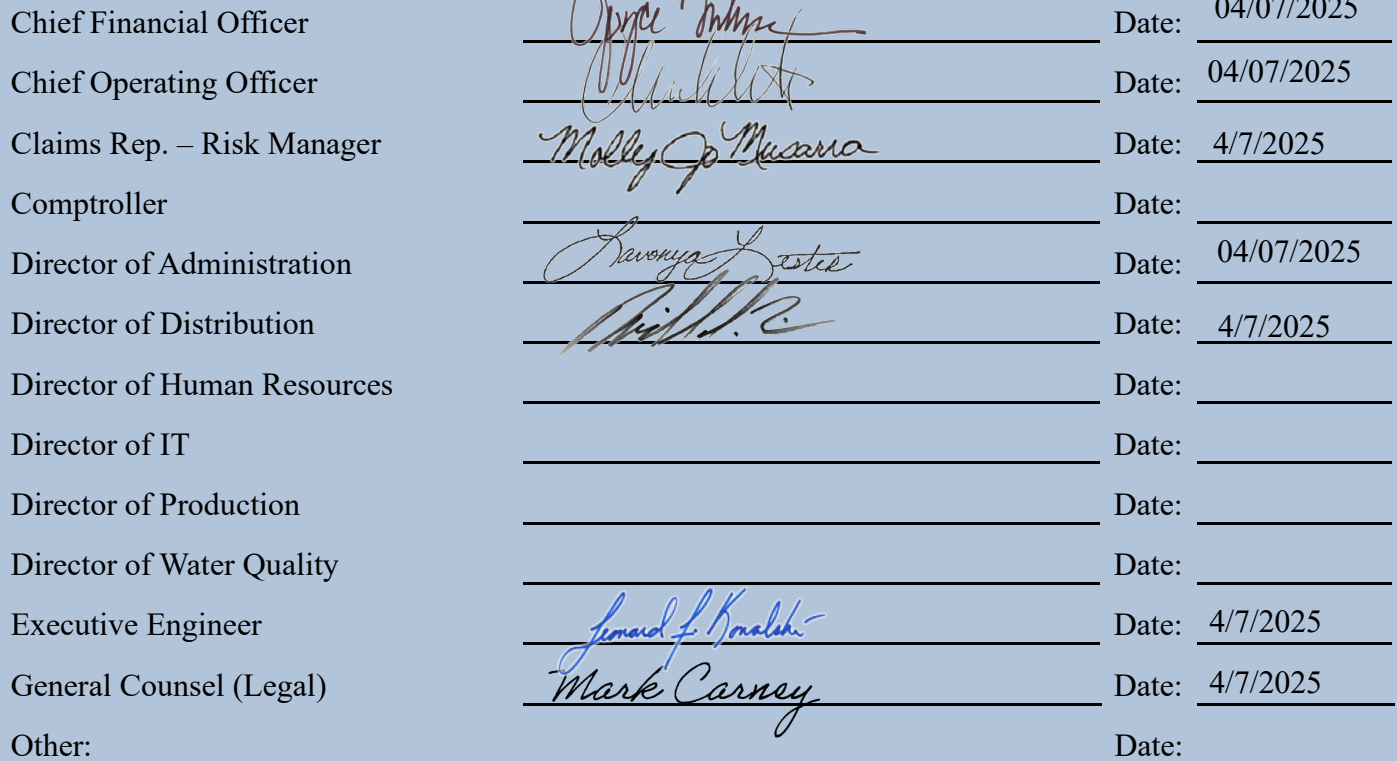 Chief Financial Officer Joyce Date: 04/07/2025
Chief Operating Officer Date: 04/07/2025
Claims Rep. – Risk Manager Molly Jo Musarra Date: 4/7/2025
Comptroller Date:
Director of Administration Lavonya Lester Date: 04/07/2025
Director of Distribution Date: 4/7/2025
Director of Human Resources Date:
Director of IT Date:
Director of Production Date:
Director of Water Quality Date:
Executive Engineer Leonard F. Kowalski Date: 4/7/2025
General Counsel (Legal) Mark Carney Date: 4/7/2025
Other: Date: